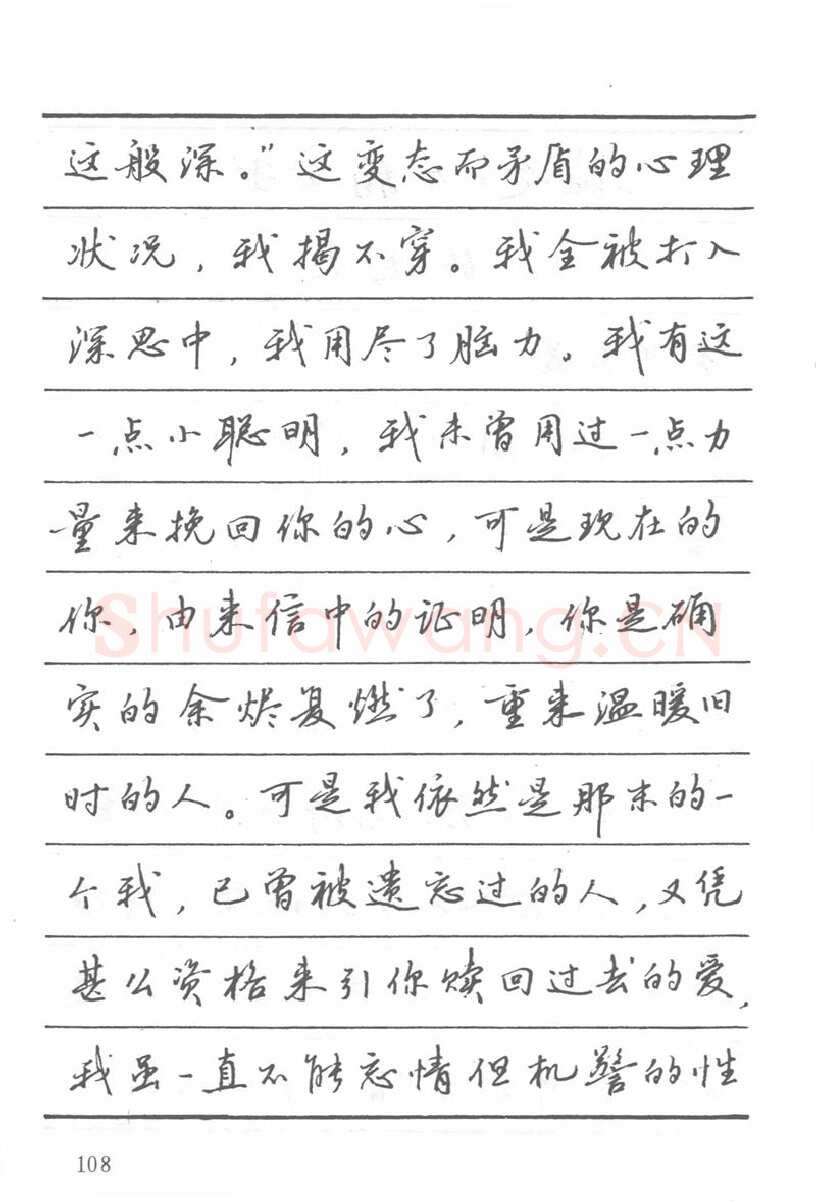 这般深。”这变态而矛盾的心理
状况，我揭不穿。我全被打入
深思中，我用尽了脑力。我有这
一点小聪明，我未曾用过一点力
量来挽回你的心，可是现在的
你，由来信中的证明，你是确
实的余烬复燃了，重来温暖旧
时的人。可是我依然是那末的一
个我，已曾被遗忘过的人，又凭
甚么资格来引你赎回过去的爱，
我虽一直不能忘情但机警的性
108
Shufawang.CN